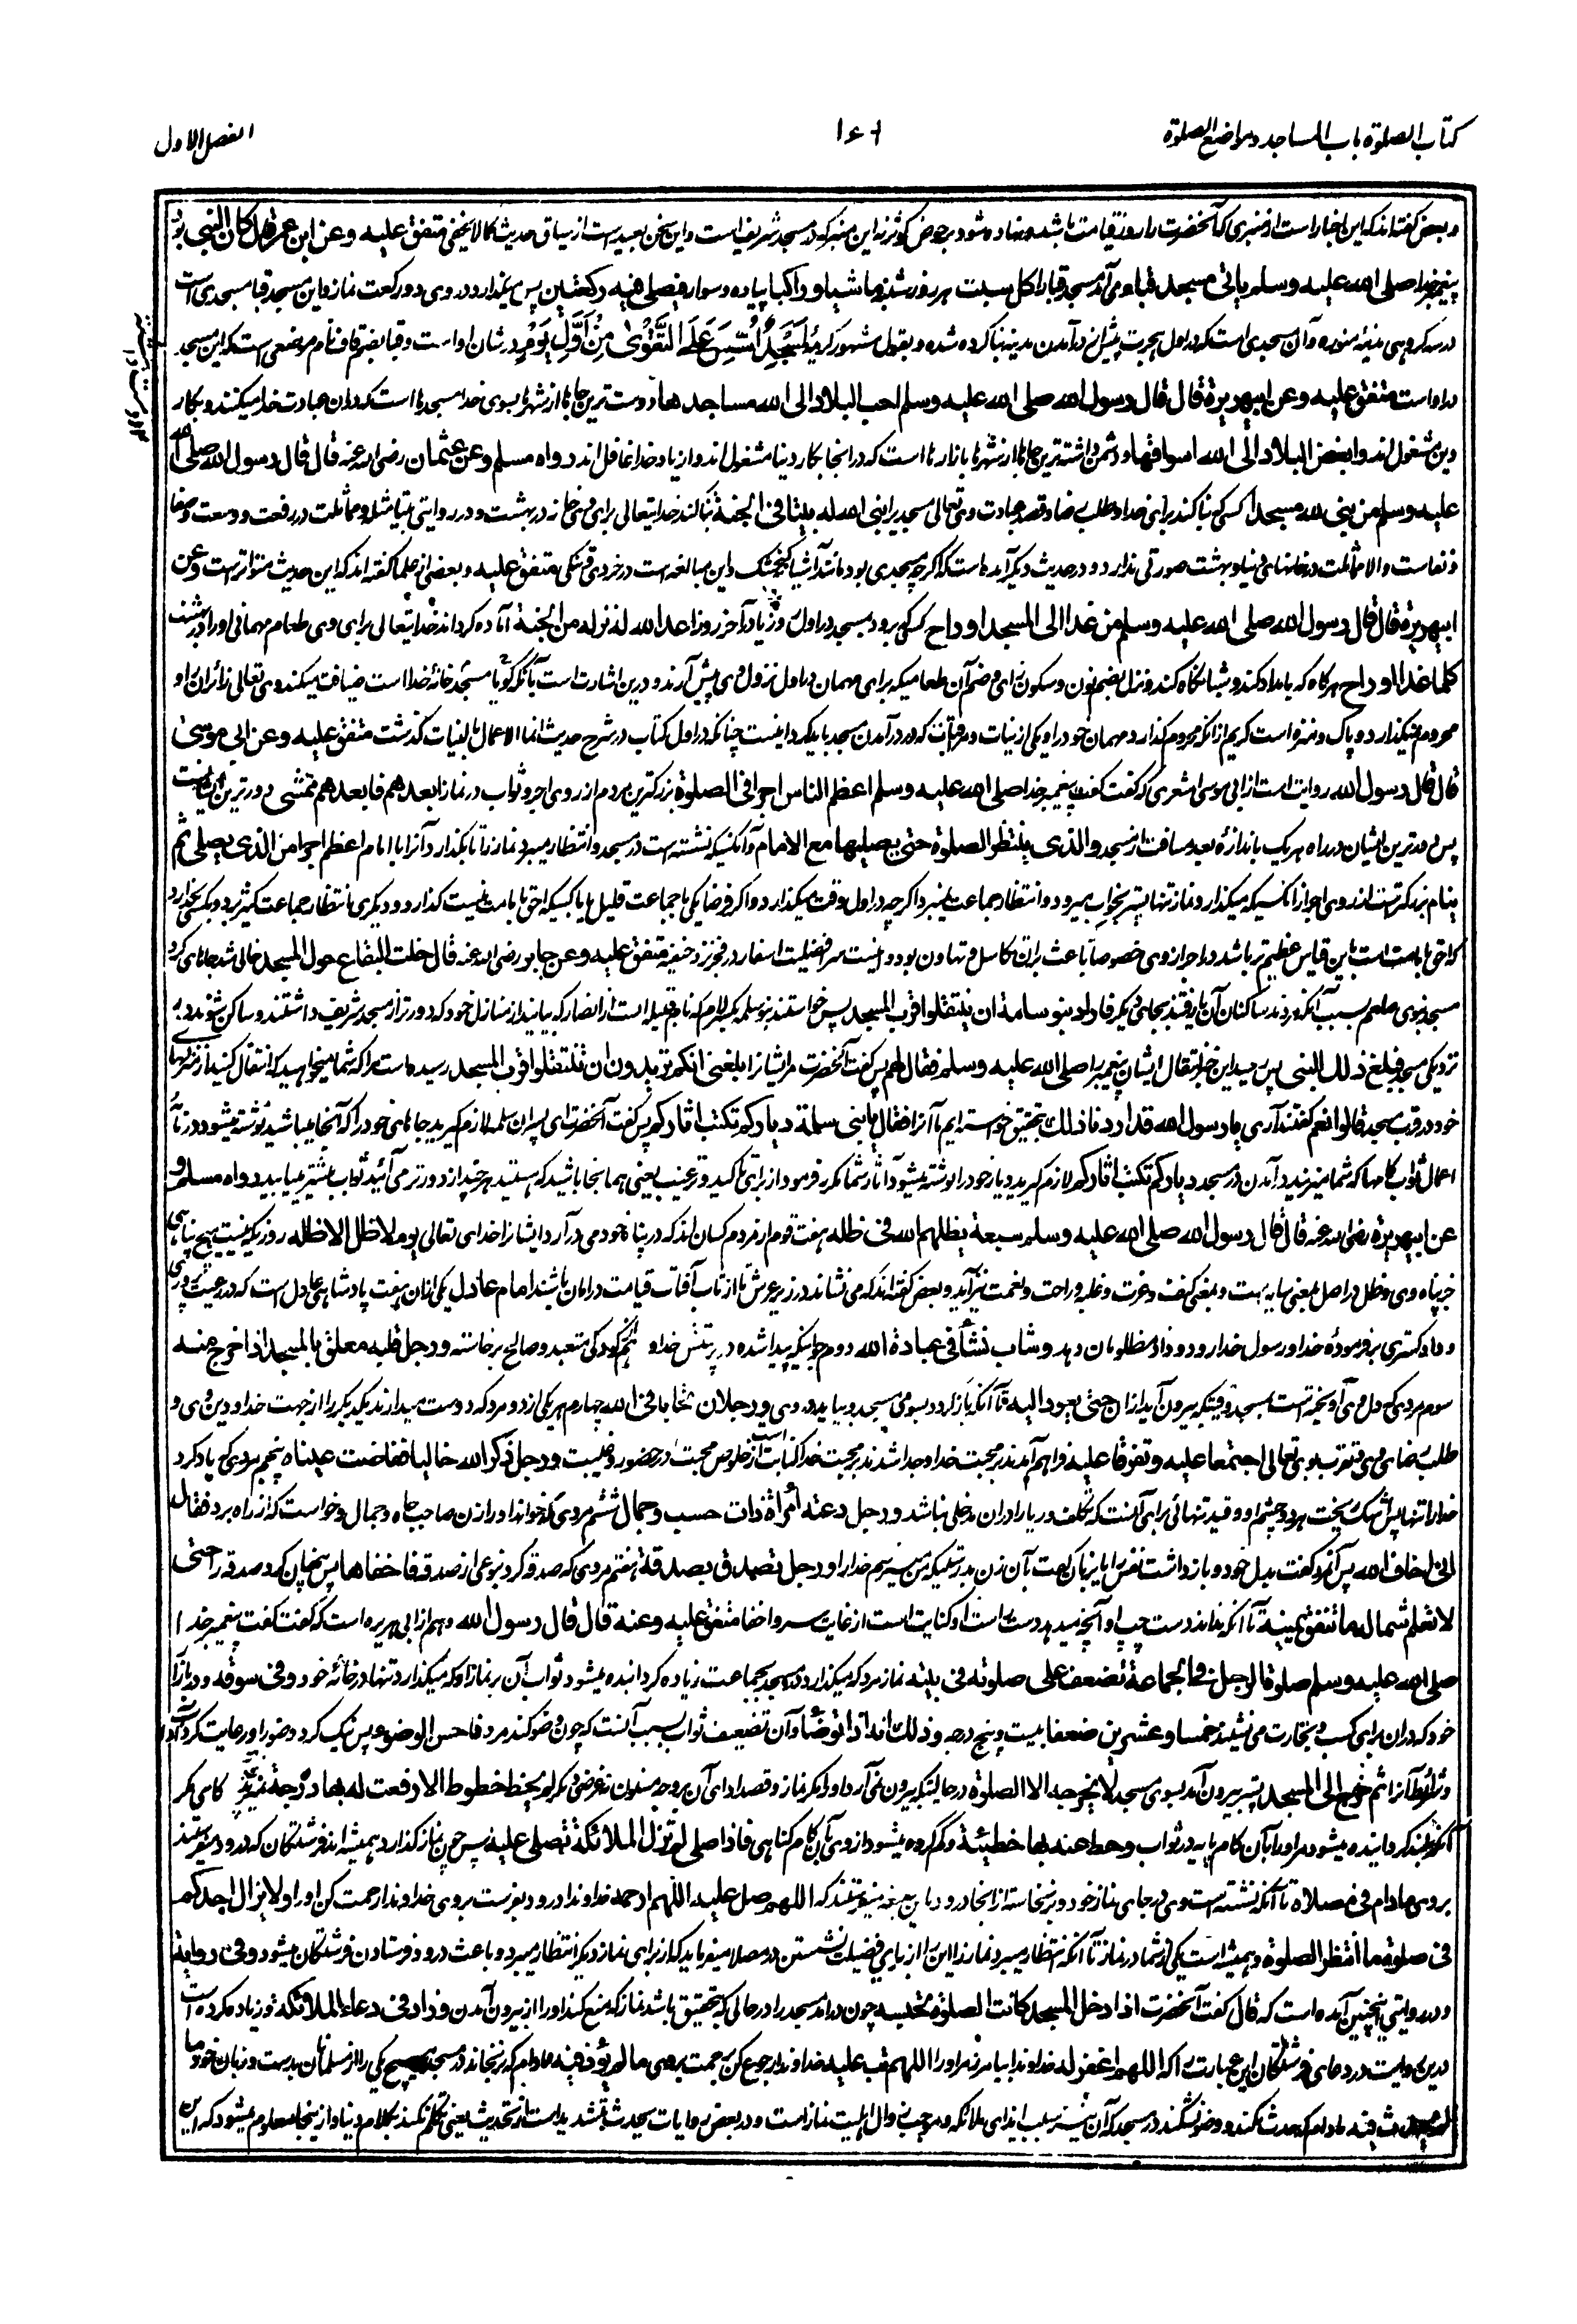 کتاب الصلوة باب المساجد ومواضع الصلوة
الفصل الاول
وبعض گفته‌اند که این اخبار است از منبری که آنحضرت را روز قیامت باشد ونهاده شود بر حوض کوثر نه این منبر که در مسجد شریف است واین سخن بعید است از سیاق حدیث کما لا یخفی متفق علیه وعن ابن عمر قال کان النبی بود
پیغمبر خدا صلی الله علیه وسلم یاتی مسجد قباء می آمد مسجد قبا را کل سبت هر روز شنبه ماشیا وراکبا پیاده وسوار فیصلی فیه رکعتین پس میگذارد در وی دو رکعت نماز واین مسجد قبا مسجدی است
در سه کروهی مدینه منوره وآن مسجدی است که در اول هجرت پیش از در آمدن مدینه بنا کرده شده وبقول مشهور کریمۀ لَمَسْجِدٌ اُسِّسَ عَلَی التَّقْوٰی مِنْ اَوَّلِ یَوْمٍ در شان او است وقبا بضم قاف نام موضعی است که این مسجد
در او است متفق علیه وعن ابیهریرة قال قال رسول الله صلی الله علیه وسلم احب البلاد الی الله مساجدها دوست ترین جایها از شهرها بسوی خدا مسجدها است که در آن عبادت خدا میکنند وبکار
دین مشغول اند وابغض البلاد الی الله اسواقها ودشمن داشته ترین جایها از شهرها بازارها است که در انجا بکار دنیا مشغول اند واز یاد خدا غافل اند رواه مسلم وعن عثمان رضی الله عنه قال قال رسول الله صلی الله
علیه وسلم من بنی لله مسجدا کسی که بنا کند برای خدا وطلب رضا وقصد عبادت وی تعالی مسجد را بنی الله له بیتا فی الجنة بنا کند خدایتعالی برای وی خانه در بهشت ودر روایتی بیتا مثله ومماثلت در رفعت ووسعت وصفا
ونفاست والا مماثلت در خانهای دنیا وبهشت صورتی ندارد ودر حدیث دیگر آمده است که اگرچه مسجدی بود مانند آشیانۀ گنجشک واین مبالغه است در خردی وتنگی متفق علیه وبعضی از علما گفته اند که این حدیث متواتر است وعن
ابیهریرة قال قال رسول الله صلی الله علیه وسلم من غدا الی المسجد او راح کسی که برود بمسجد در اول روز یا در آخر روز اعد الله له نزله من الجنة آماده گرداند خدایتعالی برای وی طعام مهمانی او را در بهشت
کلما غدا او راح هرگاه که بامداد کند وشبانگاه کند ونزل بضم نون وسکون زای وضم آن طعامیکه برای مهمان در اول نزول وی پیش آرند ودرین اشارت است بآنکه گویا مسجد خانۀ خدا است ضیافت میکند وی تعالی زائران او
محروم نمیگذارد وپاک ومنزه است کریم از آنکه محروم گذارد مهمان خود را ویکی از نیات ومرقبات که در در آمدن مسجد باید کرد اینست چنانکه در اول کتاب در شرح حدیث انما الاعمال بالنیات گذشت متفق علیه وعن ابی موسی
قال قال رسول الله روایت است از ابی موسی اشعری که گفت گفت پیغمبر خدا صلی الله علیه وسلم اعظم الناس اجرا فی الصلوة بزرگترین مردم از روی اجر وثواب در نماز ابعدهم فابعدهم ممشی دورترین ایشانست
پس دورترین ایشان در راه هر یک باندازه بعد مسافت از مسجد والذی ینتظر الصلوة حتی یصلیها مع الامام وآنکسیکه نشسته است در مسجد وانتظار میبرد نماز را تا بگذارد آنرا با امام اعظم اجرا من الذی یصلی ثم
ینام بزرگتر است از روی اجر از آنکسیکه میگذارد نماز تنها پستر بخواب میرود وانتظار جماعت نمیبرد اگرچه در اول وقت میگذارد واگر فرضا یکی با جماعت قلیل یا با کسیکه احق بامامت نیست گذارد ودیگری بانتظار جماعت کثیر برد وبا کسی گذارد
که احق بامامت است باین قیاس عظیم تر باشد در اجر از وی خصوصا باعث بران تکاسل وتهاون بود واینست سر فضیلت اسفار در فجر نزد حنفیه متفق علیه وعن جابر رضی الله عنه قال خلت البقاع حول المسجد خالی شد جاهای گرد
مسجد نبوی صلعم بسبب آنکه مردند ساکنان آن یا رفتند بجای دیگر فاراد بنو سلمة ان ینتقلوا قرب المسجد پس خواستند بنو سلمه بکسر لام که نام قبیله است از انصار که بیایند از منازل خود که دورتر از مسجد شریف داشتند وساکن شوند در
نزدیکی مسجد فبلغ ذلک النبی پس رسید این خبر انتقال ایشان پیغمبر را صلی الله علیه وسلم فقال لهم پس گفت آنحضرت مر ایشانرا بلغنی انکم تریدون ان تنتقلوا قرب المسجد رسیده است مرا که شما میخواهید که انتقال کنید از منزلهای
خود در قرب مسجد قالوا نعم گفتند آری یا رسول الله قد اردنا ذلک بتحقیق خواسته ایم ما آنرا فقال یا بنی سلمة دیارکم تکتب اثارکم پس گفت آنحضرت ای پسران سلمه لازم گیرید جاهای خود را که آنجا میباشید نوشته میشود در نامۀ
اعمال ثواب گامها که شما میزنید در آمدن در مسجد دیارکم تکتب اثارکم لازم گیرید دیار خود را نوشته میشود آثار شما مکرر فرمود از برای تاکید وترغیب یعنی هما نجا باشید که هستید هر چند از دورتر می آئید ثواب بیشتر مییابید رواه مسلم و
عن ابیهریرة رضی الله عنه قال قال رسول الله صلی الله علیه وسلم سبعة یظلهم الله فی ظله هفت قوم از مردم کسان اند که در پناه خود می در آرد ایشانرا خدای تعالی یوم لا ظل الا ظله روزیکه نیست هیچ پناهی
جز پناه وی وظل در اصل بمعنی سایه است وبمعنی کنف وعزت وغلبه وراحت ونعمت نیز آید وبعض گفته اند که می نشاند در زیر عرش تا از تاب آفتاب قیامت در امان باشند امام عادل یکی ازان هفت پادشاهی عادل است که در رعیت پروری
وداد گستری بفرمودۀ خدا ورسول خدا رود وداد مظلومان دهد وشاب نشأ فی عبادة الله دوم جوانیکه پیدا شده در پرستش خدا وهم از کودکی متعبد وصالح برخاسته ورجل قلبه معلق بالمسجد اذا خرج منه
سوم مردی که دل وی آویخته است بمسجد وقتیکه بیرون آید ازان حتی یعود الیه تا آنکه باز گردد بسوی مسجد وبیاید در وی ورجلان تحابا فی الله چهارم هر یکی از دو مرد که دوست میدارند یکدیگر را از جهت خدا ودین وی و
طلب رضای وی وتقرب بوی تعالی اجتمعا علیه وتفرقا علیه فراهم آمدند بر محبت خدا وجدا شدند بر محبت خدا کنایت است از خلوص محبت در حضور وغیبت ورجل ذکر الله خالیا ففاضت عیناه پنجم مردی که یاد کرد
خدا را تنها پس اشک ریخت هر دو چشم او وقید تنهائی برای آنست که تکلف وریا را دران دخلی نباشد ورجل دعته امرأة ذات حسب وجمال ششم مردی که خواند او را زن صاحب جاه وجمال وخواست که از راه برد فقال
انی اخاف الله پس آنمرد گفت بدل خود وباز داشت نفس را یا بزبان گفت بآن زن بدرستیکه من میترسم خدا را ورجل تصدق بصدقة هفتم مردی که صدقه کرد بنوعی از صدقه فاخفاها پس پنهان کرد صدقه را حتی
لا تعلم شماله ما تنفق یمینه تا آنکه نداند دست چپ او آنچه میدهد دست راست او کنایت است از غایت سر واخفا متفق علیه وعنه قال قال رسول الله وهم از ابی هریره است که گفت گفت پیغمبر خدا
صلی الله علیه وسلم صلوة الرجل فی الجماعة تضعف علی صلوته فی بیته نماز مرد که میگذارد در مسجد بجماعت زیاده گردانیده میشود ثواب آن بر نماز او که میگذارد تنها در خانۀ خود وفی سوقه ودر بازار
خود که دران برای کسب وتجارت می نشیند خمسا وعشرین ضعفا بیست وپنج درجه وذلک انه اذا توضأ وآن تضعیف ثواب بسبب آنست که چون وضو کند مرد فاحسن الوضوء پس نیک کرد وضو را ورعایت کرد آداب
وشرائط آنرا ثم خرج الی المسجد پستر بیرون آمد بسوی مسجد لا یخرجه الا الصلوة در حالیکه بیرون نمی آرد او را مگر نماز وقصد ادای آن بر وجه مسنون نه غرضی دیگر لم یخط خطوة الا رفعت له بها درجة نمیزند گامی مگر
آنکه بلند گردانیده میشود مر او را بآن گام پایه در ثواب وحط عنه بها خطیئة وکم کرده میشود از وی بآن گام گناهی فاذا صلی لم تزل الملائکة تصلی علیه پس چون نماز گذارد همیشه اند فرشتگان که درود میفرستند
بر وی ما دام فی مصلاه تا آنکه نشسته است وی در جای نماز خود وبر نخاسته از انجا درود باین صیغه میفرستند که اللهم صل علیه اللهم ارحمه خداوندا درود بفرست بر وی خداوندا رحمت کن او را ولا یزال احدکم
فی صلوة ما انتظر الصلوة وهمیشه است یکی از شما در نماز تا آنکه انتظار میبرد نماز را این را از برای فضیلت نشستن در مصلا میفرماید که از برای نماز دیگر انتظار میبرد وباعث درود فرستادن فرشتگان میشود وفی روایة
ودر روایتی اینچنین آمده است که قال گفت آنحضرت اذا دخل المسجد کانت الصلوة تحبسه چون در اند مسجد را در حالی که بتحقیق باشد نماز که منع کند او را از بیرون آمدن وزاد فی دعاء الملائکة وزیاده کرده است
درین روایت در دعای فرشتگان این عبارت را که اللهم اغفر له خداوندا بیامرز مر او را اللهم تب علیه خداوندا رجوع کن برحمت بر وی ما لم یؤذ فیه مادام که نرنجاند در مسجد هیچ یکی را از مسلمانان بدست وزبان خود وما
لم یحدث فیه مادام که حدث نکند ووضو نشکند در مسجد که آن نیز سبب ایذای ملائکه وموجب زوال اهلیت نماز است ودر بعض روایات یحدث بتشدید است از تحدیث یعنی تکلم نکند بکلام دنیا واز ینجا معلوم میشود که این